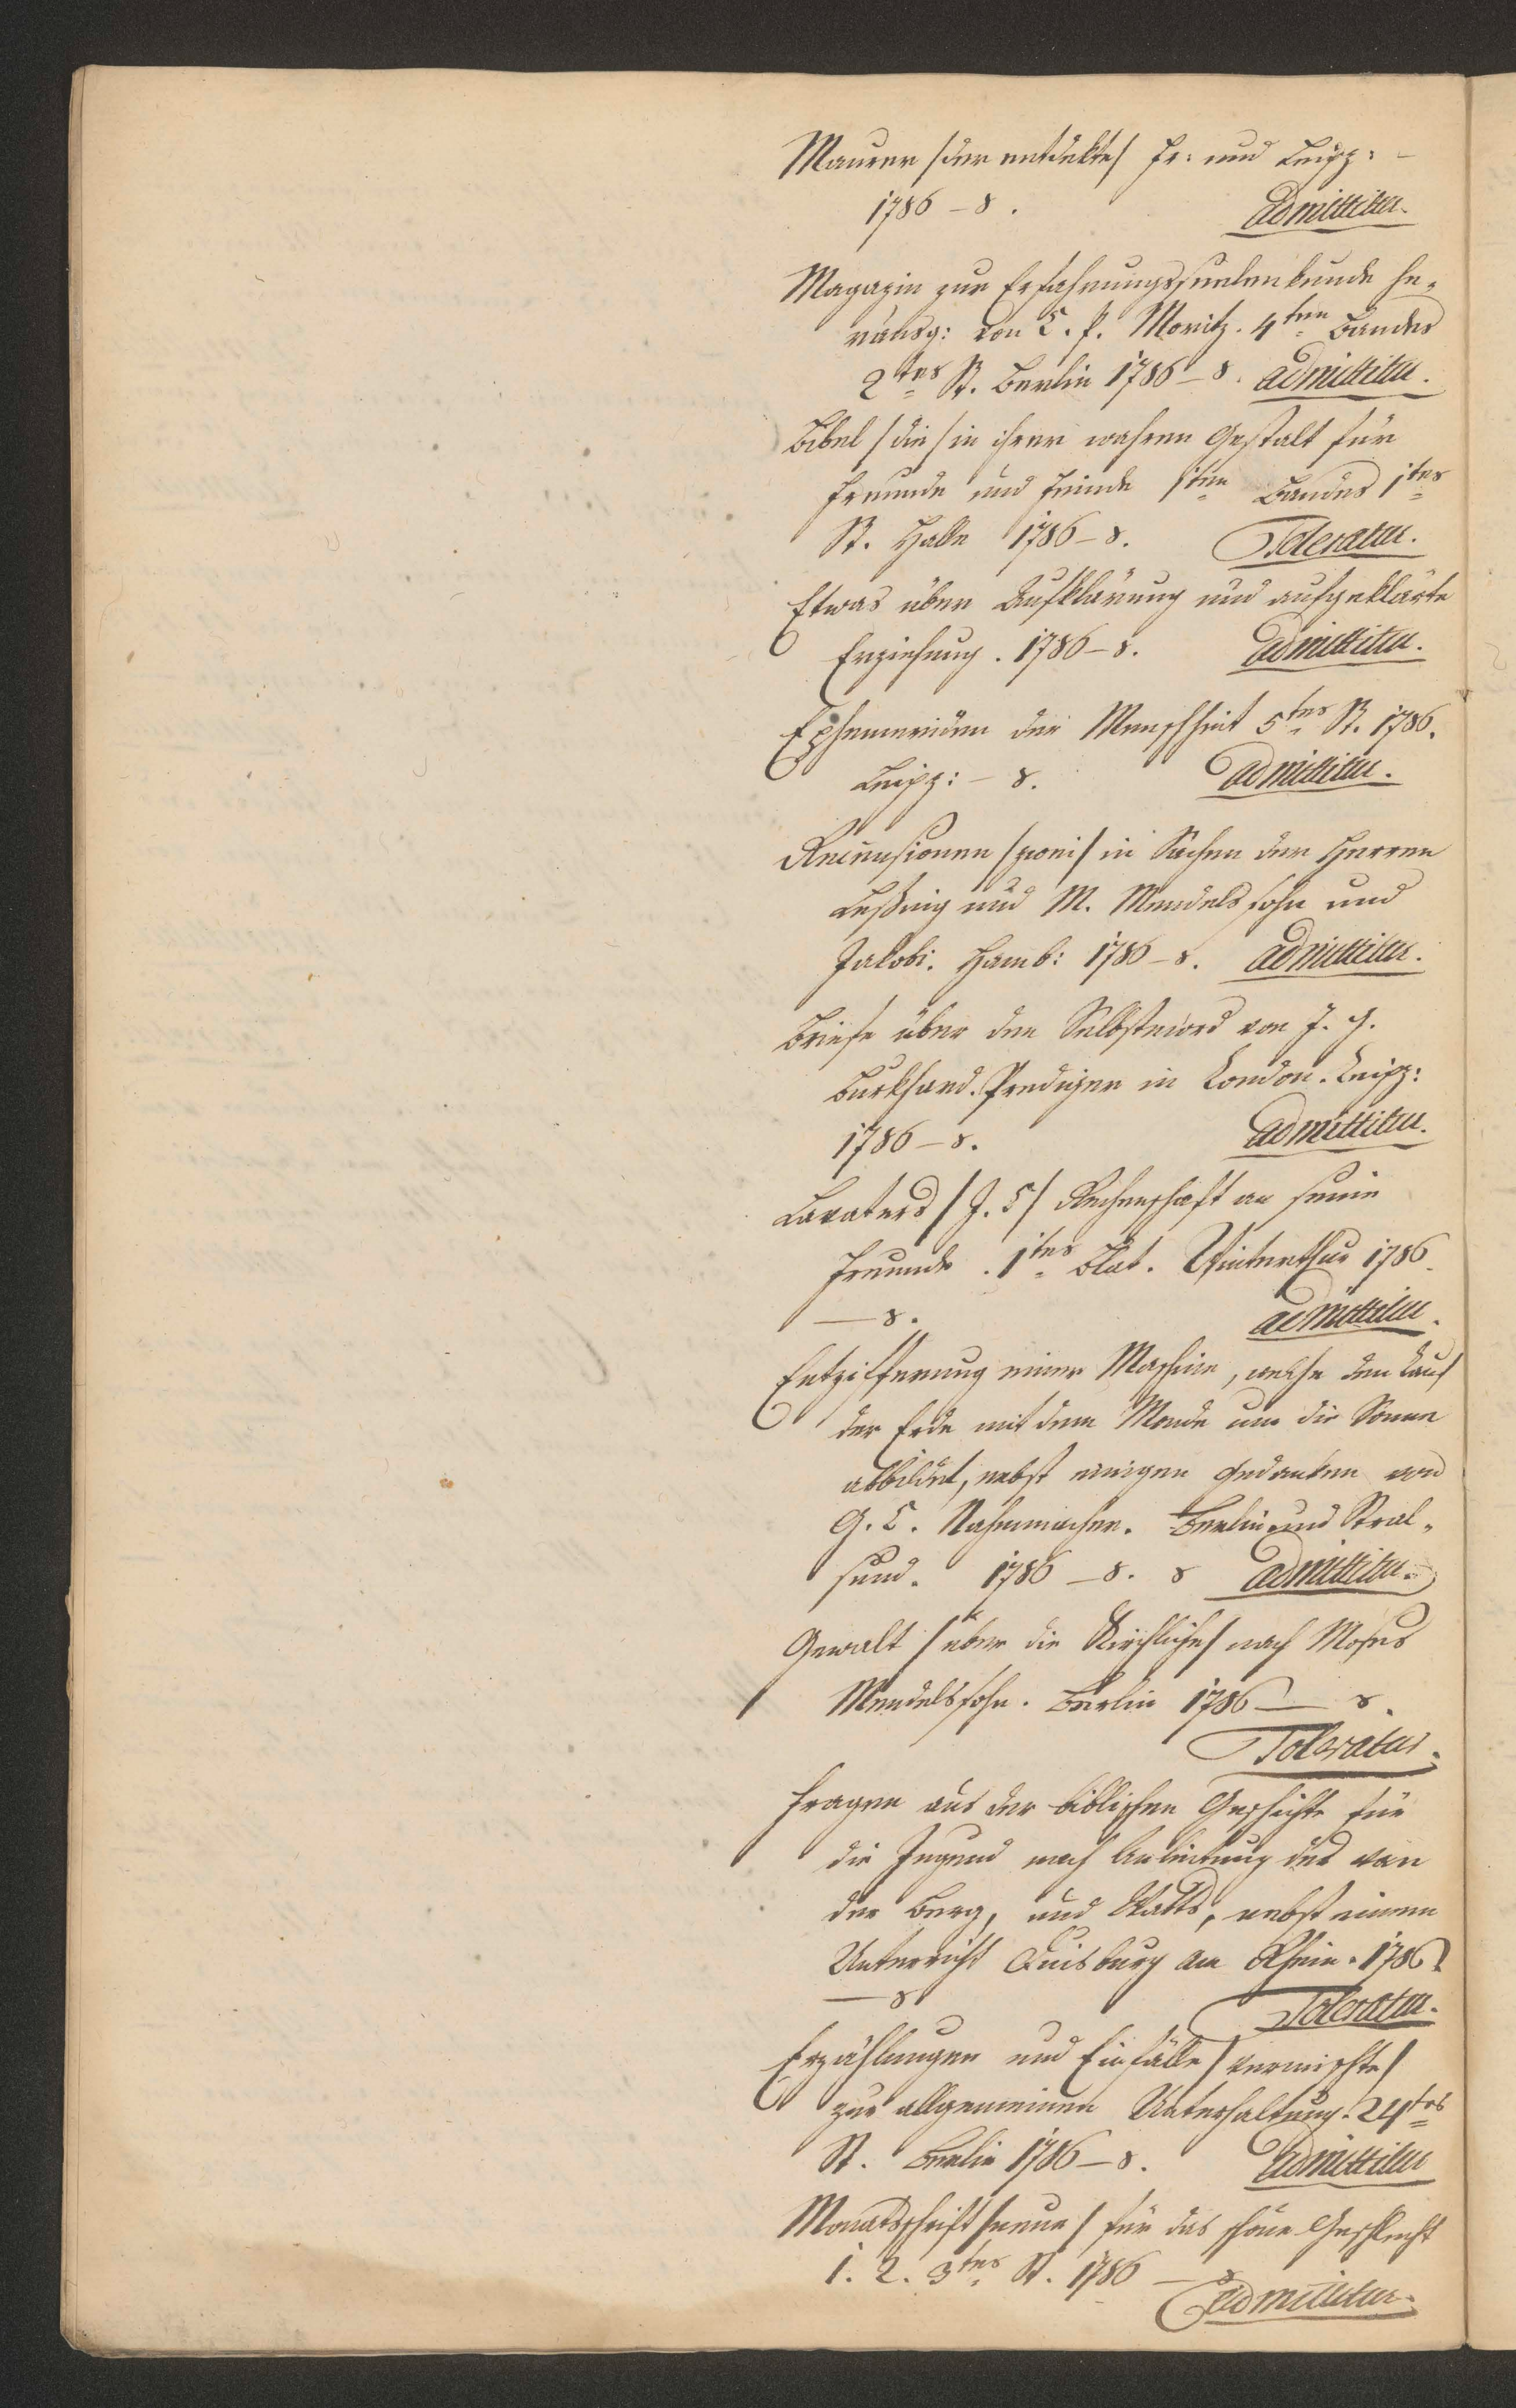 Maurer /der entdekte/ Fr: und Leipz: –
1786 – 8.
admittitur.
Magazin zur Erfahrungsseelenkunde he-
rausg: von C. P. Moritz. 4ten Bandes
2tes St. Berlin 1786 – 8. admittitur.
Bibel /die/ in ihrer wahren Gestalt für
Freunde und Feinde 1ten Bandes 1tes
St. Halle 1786 – 8. Toleratur.
Etwas über Aufklärung und aufgeklärte
Erziehung. 1786 – 8. admittitur.
Ephemeriden der Menschheit 5tes St. 1786.
Leipz: – 8. admittitur.
Recensionen /zwei/ in Sachen der Herren
Leßing und M. Mendelssohn und
Jakobi. Hamb: 1786 – 8. admittitur.
Briefe über den Selbstmord von J. G.
Burkhard. Prediger in London. Leipz:
1786 – 8. admittitur.
Lavaters /J. C/ Rechenschaft an seine
Freunde. 1tes Blat. Winterthur 1786.
– 8. admittitur.
Entzifferung einer Maschine, welche den Lauf
der Erde mit dem Monde um die Sonne
abbildet, nebst einigen Gedanken von
G. C. Nahmmacher. Berlin und Stral-
sund. 1786 – 8. 8 admittitur.
Gewalt /über die Kirchliche/ nach Moses
Mendelssohn. Berlin 1786 – 8.
Toleratur.
Fragen aus der biblischen Geschichte für
die Jugend nach Anleitung des van
der Berg, und Watts, nebst einem
Unterricht Duisburg am Rhein. 1786.
– 8 Toleratur.
Erzählungen und Einfälle /vermischte/
zur allgemeinen Unterhaltung. 24tes
St. Berlin 1786 – 8. admittitur
Monatsschrift /neue/ für das schöne Geschlecht
1. 2. 3tes St. 1786 – 8
admittitur.